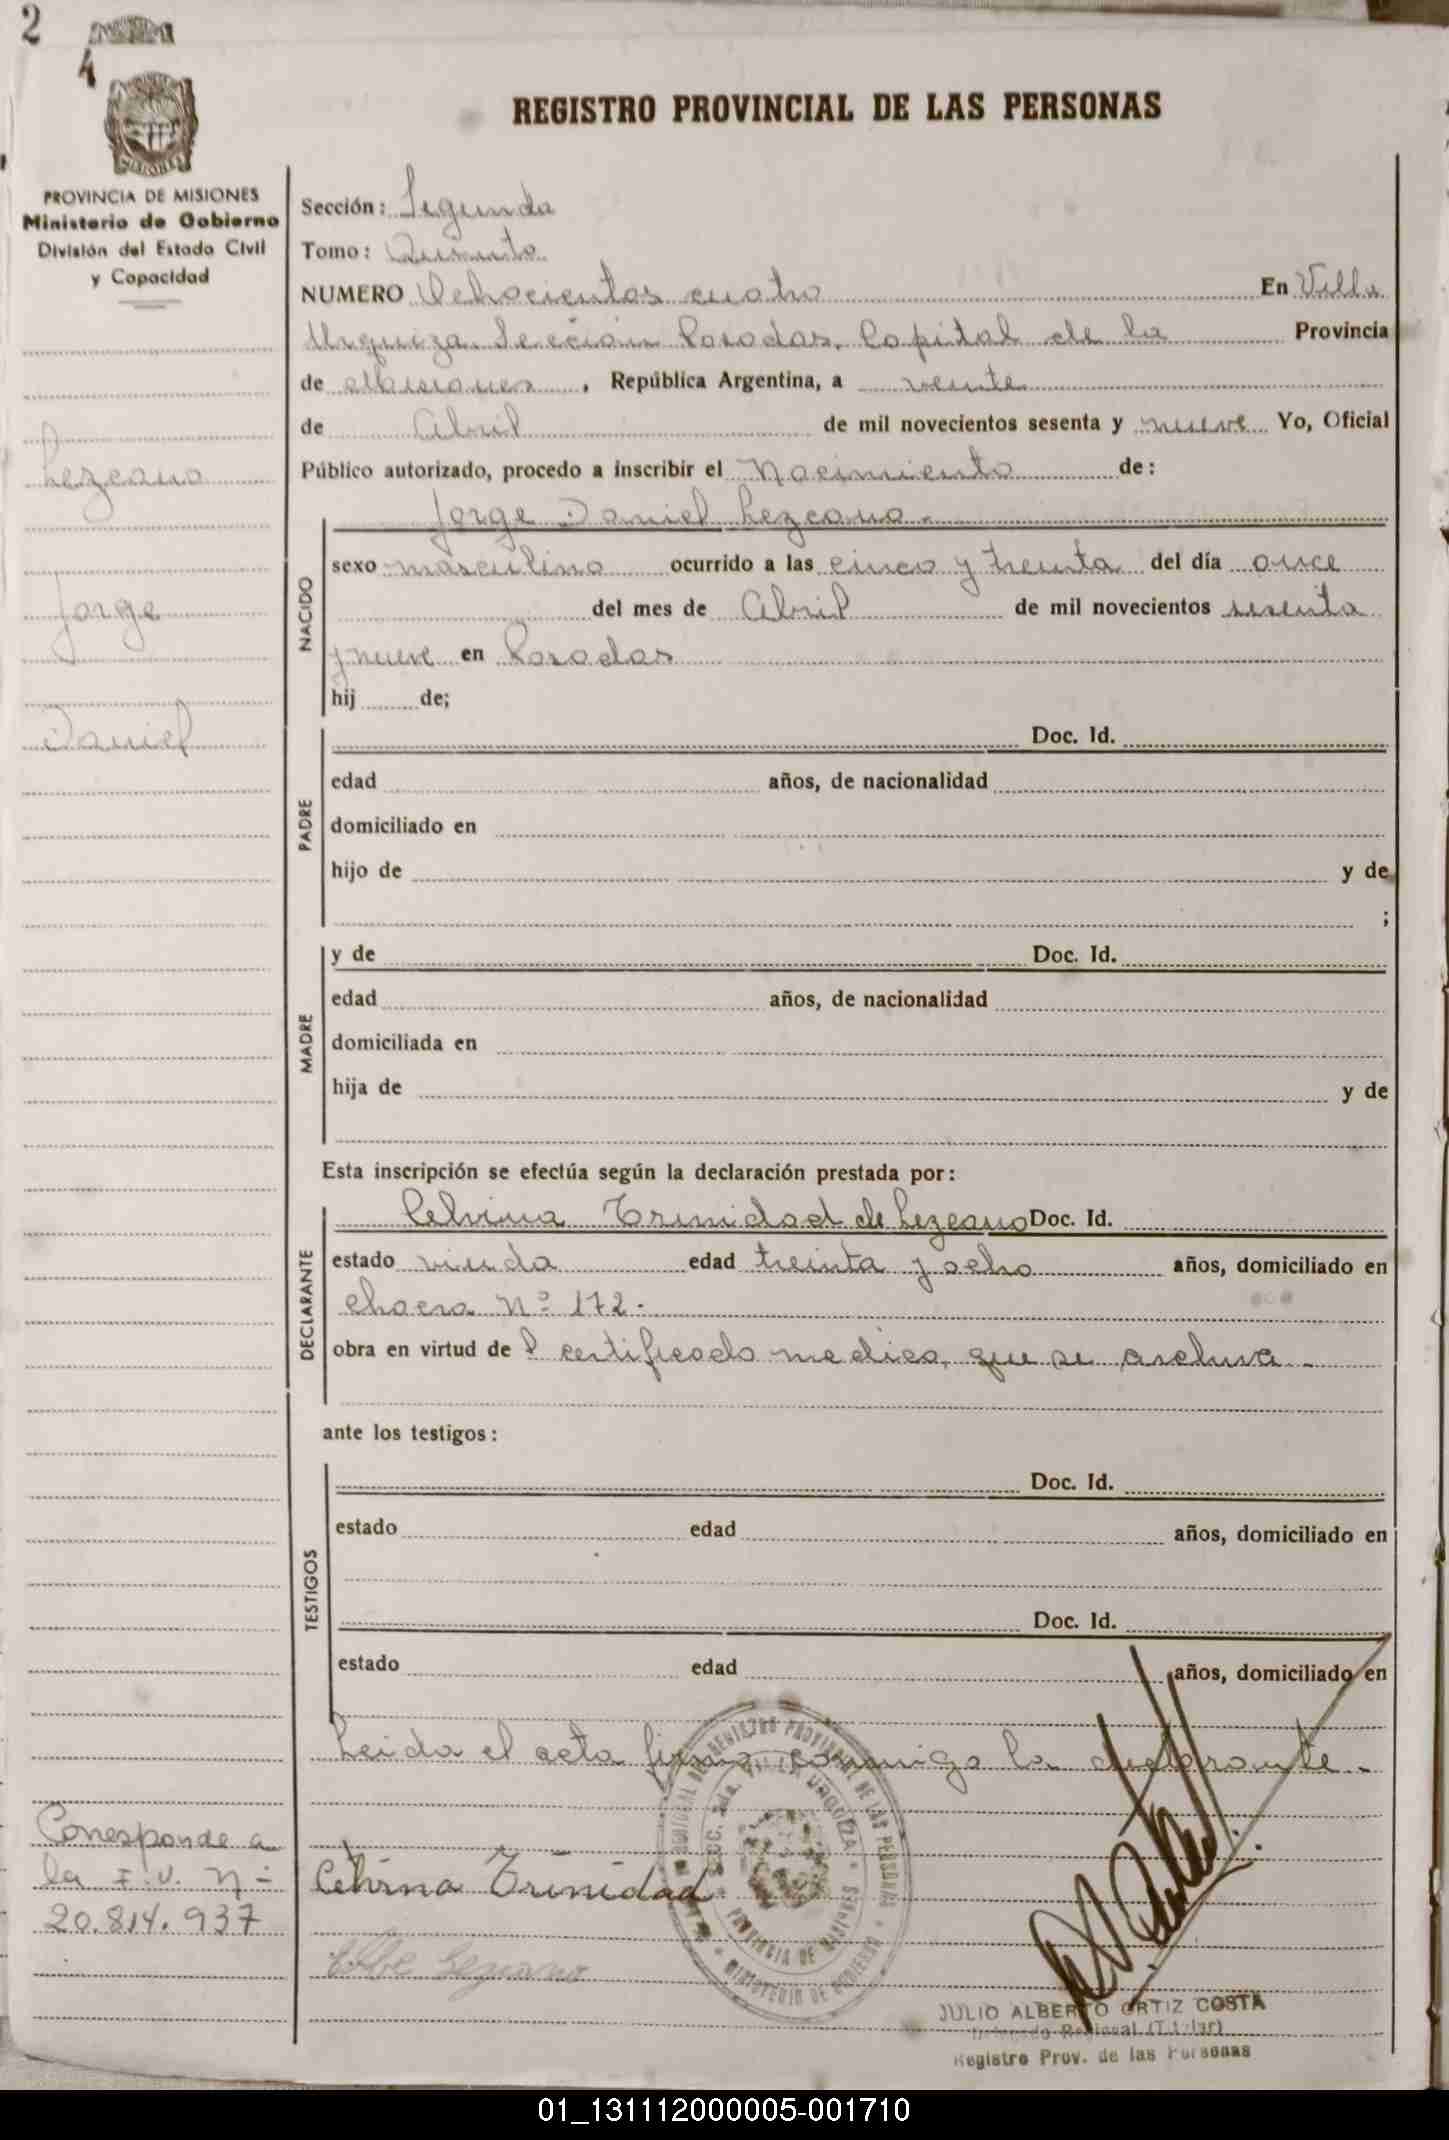 2
4
REGISTRO PROVINCIAL DE LAS PERSONAS
MISIONES
PROVINCIA DE MISIONES
Ministerio de Gobierno
División del Estado Civil
y Capacidad
Lezcano
Jorge
Daniel
Corresponde a
la I.U. Nº
20.814.937
Sección: Segunda
Tomo: Quinto
NUMERO Ochocientos cuatro En Villa
Urquiza Sección Posadas, Capital de la Provincia
de Misiones, República Argentina, a veinte
de Abril de mil novecientos sesenta y nueve Yo, Oficial
Público autorizado, procedo a inscribir el Nacimiento de:
Jorge Daniel Lezcano.-
NACIDO
sexo masculino ocurrido a las cinco y treinta del día once
del mes de Abril de mil novecientos sesenta
y nueve en Posadas
hij de;
PADRE
Doc. Id.
edad años, de nacionalidad
domiciliado en
hijo de y de
;
MADRE
y de Doc. Id.
edad años, de nacionalidad
domiciliada en
hija de y de
Esta inscripción se efectúa según la declaración prestada por:
DECLARANTE
Celvina Trinidad de Lezcano Doc. Id.
estado viuda edad treinta y ocho años, domiciliado en
chacra Nº 172.
obra en virtud de l certificado medico, que se archiva.-
ante los testigos:
TESTIGOS
Doc. Id.
estado edad años, domiciliado en
Doc. Id.
estado edad años, domiciliado en
Leida el acta firma conmigo la declarante.-
Celvina Trinidad
Lezcano
REGISTRO PROVINCIAL DE LAS PERSONAS
SECC. 2da. VILLA URQUIZA
PROVINCIA DE MISIONES
MINISTERIO DE GOBIERNO
JULIO ALBERTO ORTIZ COSTA
Delegado Regional (Titular)
Registro Prov. de las Personas
01_131112000005-001710